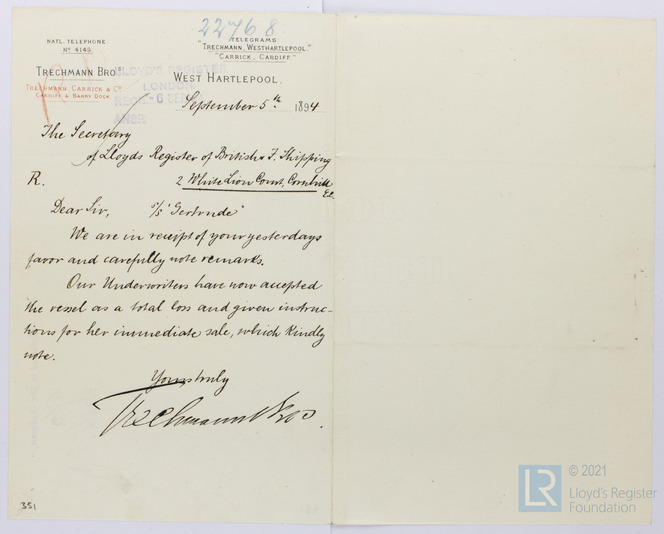 22768
NATL. TELEPHONE
Nº 4149
TELEGRAMS:
"TRECHMANN, WESTHARTLEPOOL."
"CARRICK, CARDIFF."
TRECHMANN BROS
LLOYD'S REGISTER
WEST HARTLEPOOL.
LONDON
TRECHMANN, CARRICK & Co
CARDIFF & BARRY DOCK.
6 SEP
September 5th 1894
The Secretary
of Lloyds Register of British & F. Shipping
R. 2 White Lion Court, Cornhill
EC.
Dear Sir, s/s "Gertrude"
We are in receipt of your yesterdays
favor and carefully note remarks.
Our Underwriters have now accepted
the vessel as a total loss and given instruc-
tions for her immediate sale, which kindly
note.
Yours truly
Trechmann Bros.
351
LR
© 2021
Lloyd's Register
Foundation